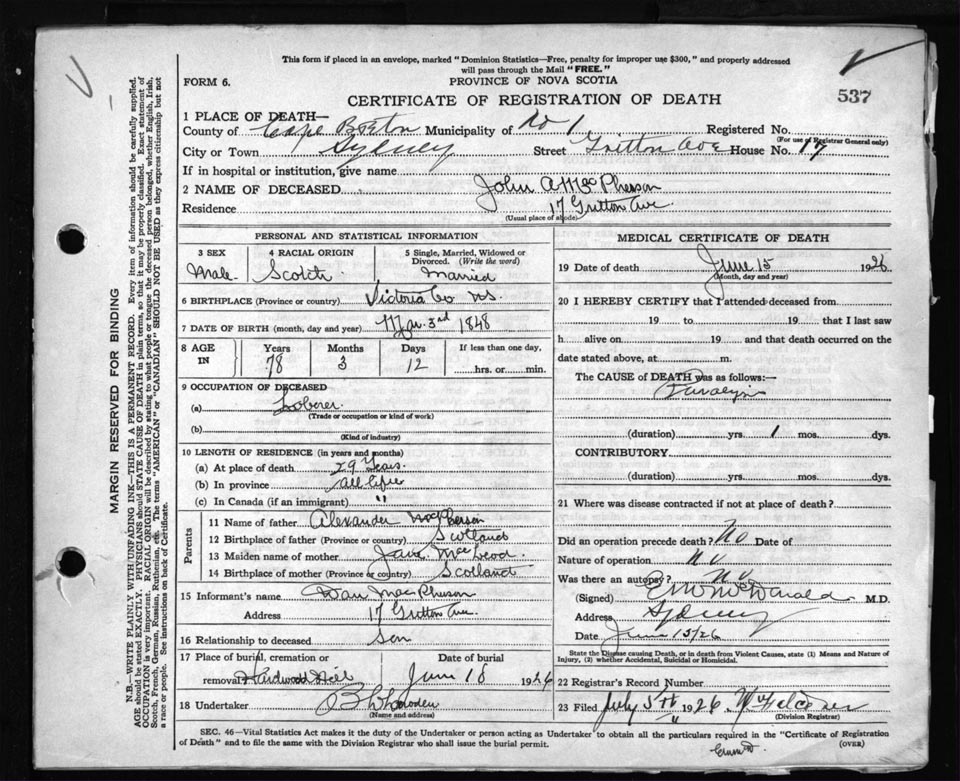 This form if placed in an envelope, marked "Dominion Statistics—Free, penalty for improper use $300," and properly addressed
will pass through the Mail "FREE."
FORM 6.
PROVINCE OF NOVA SCOTIA
CERTIFICATE OF REGISTRATION OF DEATH
537
1 PLACE OF DEATH—
County of Cape Breton Municipality of No 1 Registered No.
(For use of Registrar General only)
City or Town Sydney Street Gritton Ave House No. 17
If in hospital or institution, give name
2 NAME OF DECEASED John A McPherson
Residence 17 Gritton Ave
(Usual place of abode)
PERSONAL AND STATISTICAL INFORMATION
3 SEX Male
4 RACIAL ORIGIN Scotch
5 Single, Married, Widowed or Divorced. (Write the word) Married
6 BIRTHPLACE (Province or country) Victoria Co NS.
7 DATE OF BIRTH (month, day and year) Mar. 3rd 1848
8 AGE IN Years 78 Months 3 Days 12 If less than one day, hrs. or min.
9 OCCUPATION OF DECEASED
(a) Loberer
(Trade or occupation or kind of work)
(b)
(Kind of industry)
10 LENGTH OF RESIDENCE (in years and months)
(a) At place of death 29 Years.
(b) In province all life
(c) In Canada (if an immigrant) "
Parents
11 Name of father Alexander McPherson
12 Birthplace of father (Province or country) Scotland
13 Maiden name of mother Jane MacLeod.
14 Birthplace of mother (Province or country) Scotland
15 Informant's name Dan MacPherson
Address 17 Gritton Ave.
16 Relationship to deceased Son
17 Place of burial, cremation or removal Hardwood Hill Date of burial June 18 1926
18 Undertaker
(Name and address)
MEDICAL CERTIFICATE OF DEATH
19 Date of death June 15 1926
(Month, day and year)
20 I HEREBY CERTIFY that I attended deceased from
19 to 19 that I last saw
h alive on 19 and that death occurred on the
date stated above, at m.
The CAUSE OF DEATH was as follows:—
Paralysis
(duration) yrs. 1 mos. dys.
CONTRIBUTORY
(duration) yrs. mos. dys.
21 Where was disease contracted if not at place of death?
Did an operation precede death? No Date of
Nature of operation no
Was there an autopsy? no
(Signed) E W McDonald M.D.
Address Sydney
Date June 15/26
State the Disease causing Death, or in death from Violent Causes, state (1) Means and Nature of
Injury, (2) whether Accidental, Suicidal or Homicidal.
22 Registrar's Record Number
23 Filed July 5th 1926
(Division Registrar)
SEC. 46—Vital Statistics Act makes it the duty of the Undertaker or person acting as Undertaker to obtain all the particulars required in the "Certificate of Registration
of Death" and to file the same with the Division Registrar who shall issue the burial permit.
(OVER)
MARGIN RESERVED FOR BINDING
N.B.—WRITE PLAINLY WITH UNFADING INK—THIS IS A PERMANENT RECORD. Every item of information should be carefully supplied.
AGE should be stated EXACTLY. PHYSICIANS should STATE CAUSE OF DEATH in plain terms, so that it may be properly classified. Exact statement of
OCCUPATION is very important. RACIAL ORIGIN will be described by stating to what people or tongue the deceased person belonged, whether English, Irish,
Scotch, French, German, Russian, Ruthenian, etc. The terms "AMERICAN" or "CANADIAN" SHOULD NOT BE USED as they express citizenship but not
a race or people. See instructions on back of Certificate.